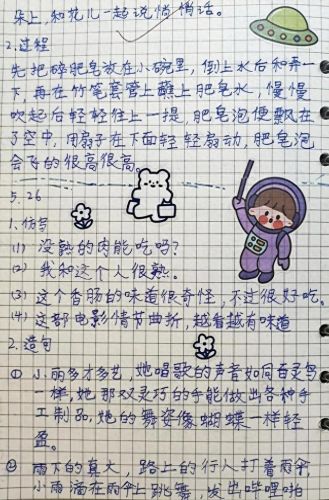 朵上,和花儿一起说悄悄话。
2.过程
先把碎肥皂放在小碗里,倒上水后和弄一
下,再在竹笔套管上蘸上肥皂水,慢慢
吹起后轻轻往上一提,肥皂泡便飘在
了空中,用扇子在下面轻轻扇动,肥皂泡
会飞的很高很高。
5.26
1.仿写
(1) 没熟的肉能吃吗?
(2) 我和这个人很熟。
(3) 这个香肠的味道很奇怪,不过很好吃。
(4) 这部电影情节曲折,越看越有味道
2.造句
① 小丽多才多艺,她唱歌的声音如同百灵鸟
一样,她那双灵巧的手能做出各种手
工制品,她的舞姿像蝴蝶一样轻
盈。
② 雨下的真大,路上的行人打着雨伞,
小雨滴在雨伞上跳舞,发出哔哩啪